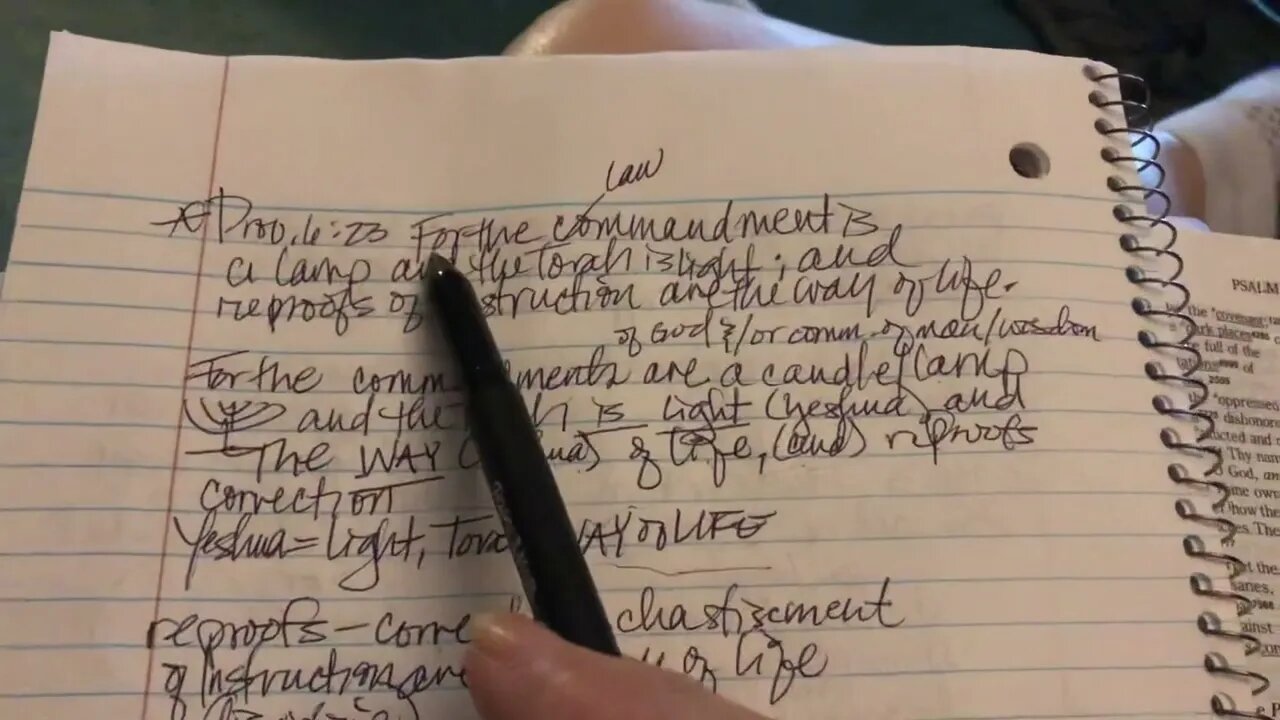 law
Prov. 6:23 For the commandment is
a lamp and the Torah is light; and
reproofs of instruction are the way of life.
of God &/or comm. of man/wisdom
For the comm ments are a candle/lamp
and the h is light (Yeshua) and
The WAY ( ua) of life, (and) reproofs
correction
Yeshua = light, Tora WAY of LIFE
reproofs - corre chastisement
of instruction are of life
PSALM
the "covenant:
dark places
full of the
of
"oppressed
dishonor
ucted and
Thy nam
God, an
ine own
how the
es. The
et the